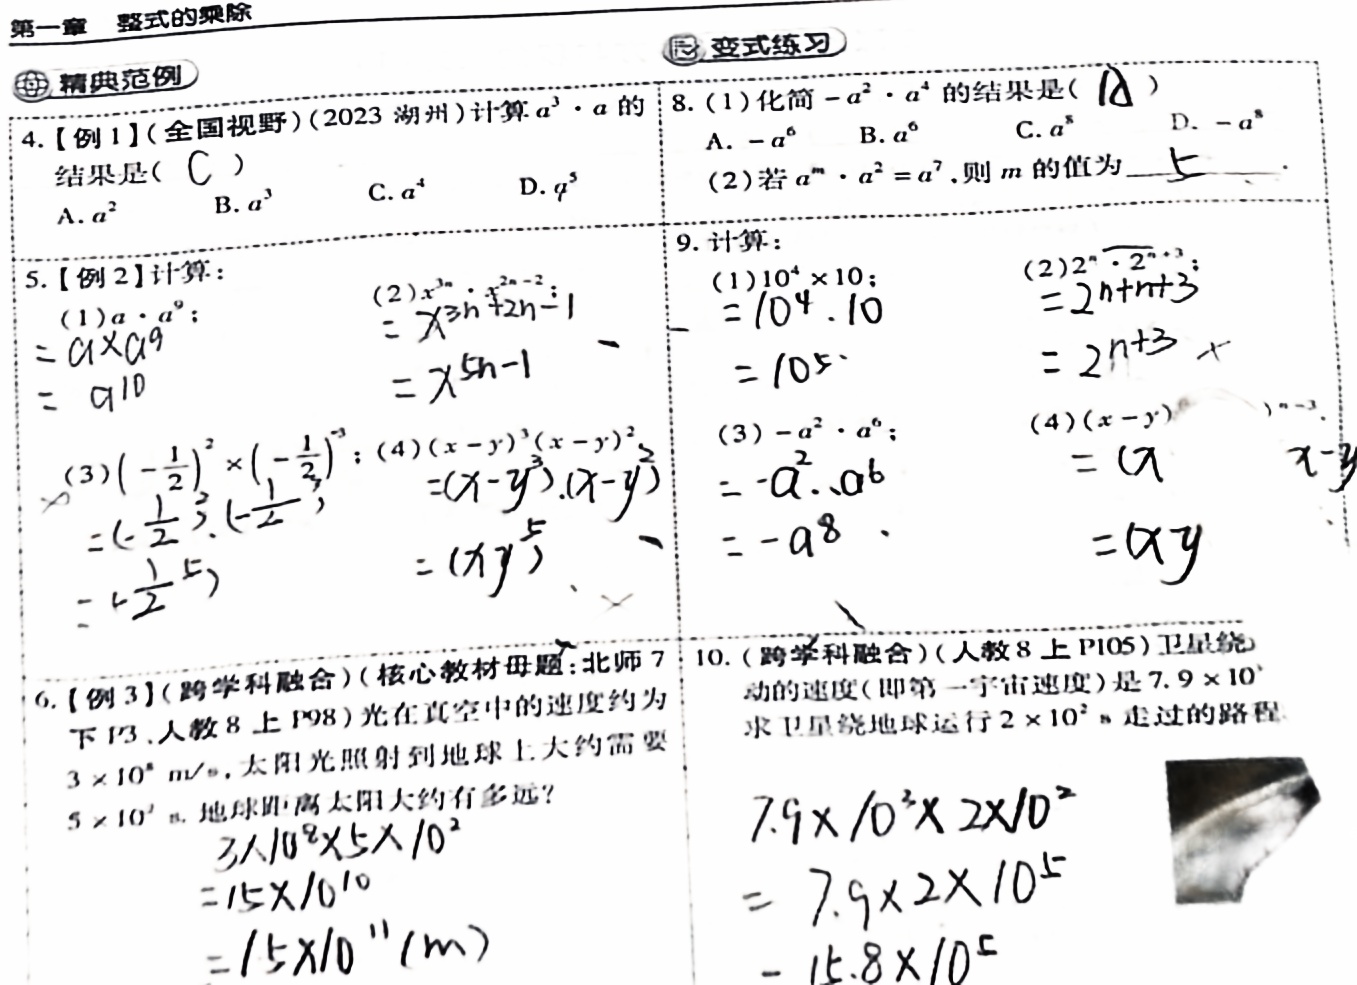 第一章 整式的乘除
精典范例
4.【例1】(全国视野)(2023 湖州)计算 a³·a 的
结果是( C )
A. a² B. a³ C. a⁴ D. a⁵
5.【例2】计算:
(1) a·a⁹;
= a×a⁹
= a¹⁰
(2) x³ⁿ·x²ⁿ⁻²;
= x³ⁿ⁺²ⁿ⁻¹
= x⁵ⁿ⁻¹
(3) (-1/2)² × (-1/2)³;
= (-1/2)²·(-1/2)³
= (-1/2⁵)
(4) (x-y)³(x-y)².
=(x-y³).(x-y²)
= (xy⁵)
6.【例3】(跨学科融合)(核心教材母题:北师7
下P3、人教8上P98)光在真空中的速度约为
3×10⁸ m/s,太阳光照射到地球上大约需要
5×10² s.地球距离太阳大约有多远?
3×10⁸×5×10²
=15×10¹⁰
=15×10¹¹(m)
变式练习
8.(1)化简 -a²·a⁴ 的结果是( )
A. -a⁶ B. a⁶ C. a⁸ D. -a⁸
(2)若 aᵐ·a²=a⁷,则 m 的值为 5 .
9. 计算:
(1)10⁴×10;
= 10⁴.10
= 10⁵
(2)2ⁿ·2ⁿ⁺³;
= 2ⁿ⁺ⁿ⁺³
= 2ⁿ⁺³ ×
(3) -a²·a⁶;
= -a²·a⁶
= -a⁸
(4)(x-y) )ⁿ⁻³.
= (x x-y
= (xy
10.(跨学科融合)(人教8上P105)卫星绕
动的速度(即第一宇宙速度)是7.9×10
求卫星绕地球运行2×10² s 走过的路程
7.9×10³×2×10²
= 7.9×2×10⁵
= 15.8×10⁵